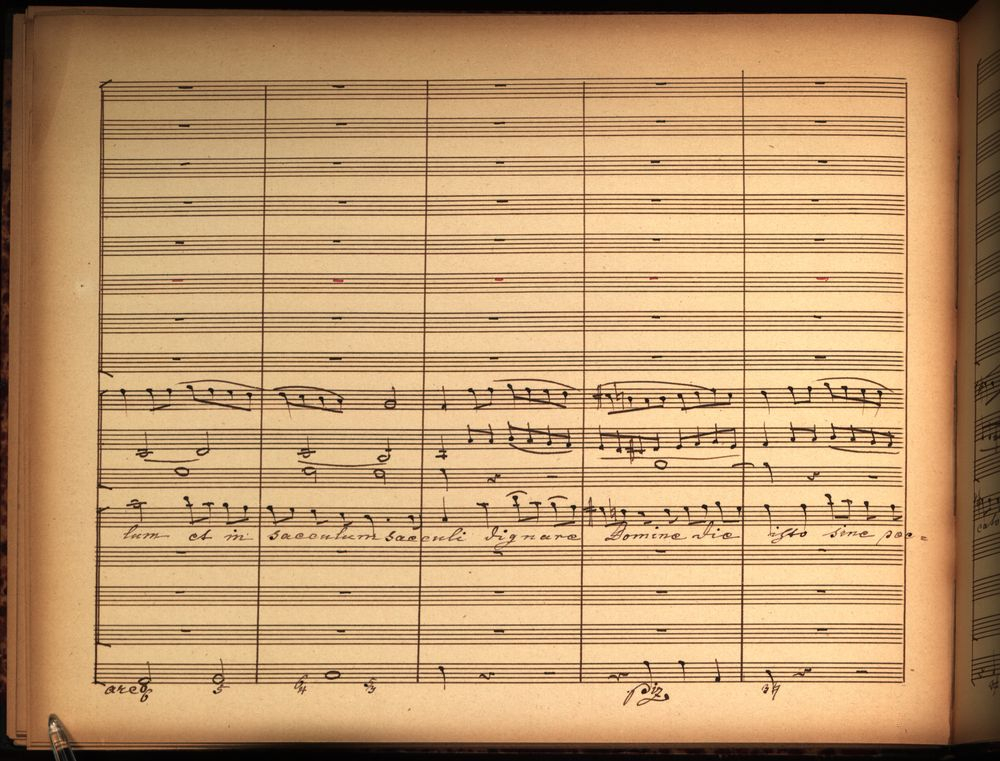 lum et in saeculum saeculi dignare Domine die isto sine pec=
arco 6 5 6/4 5/3 piz.